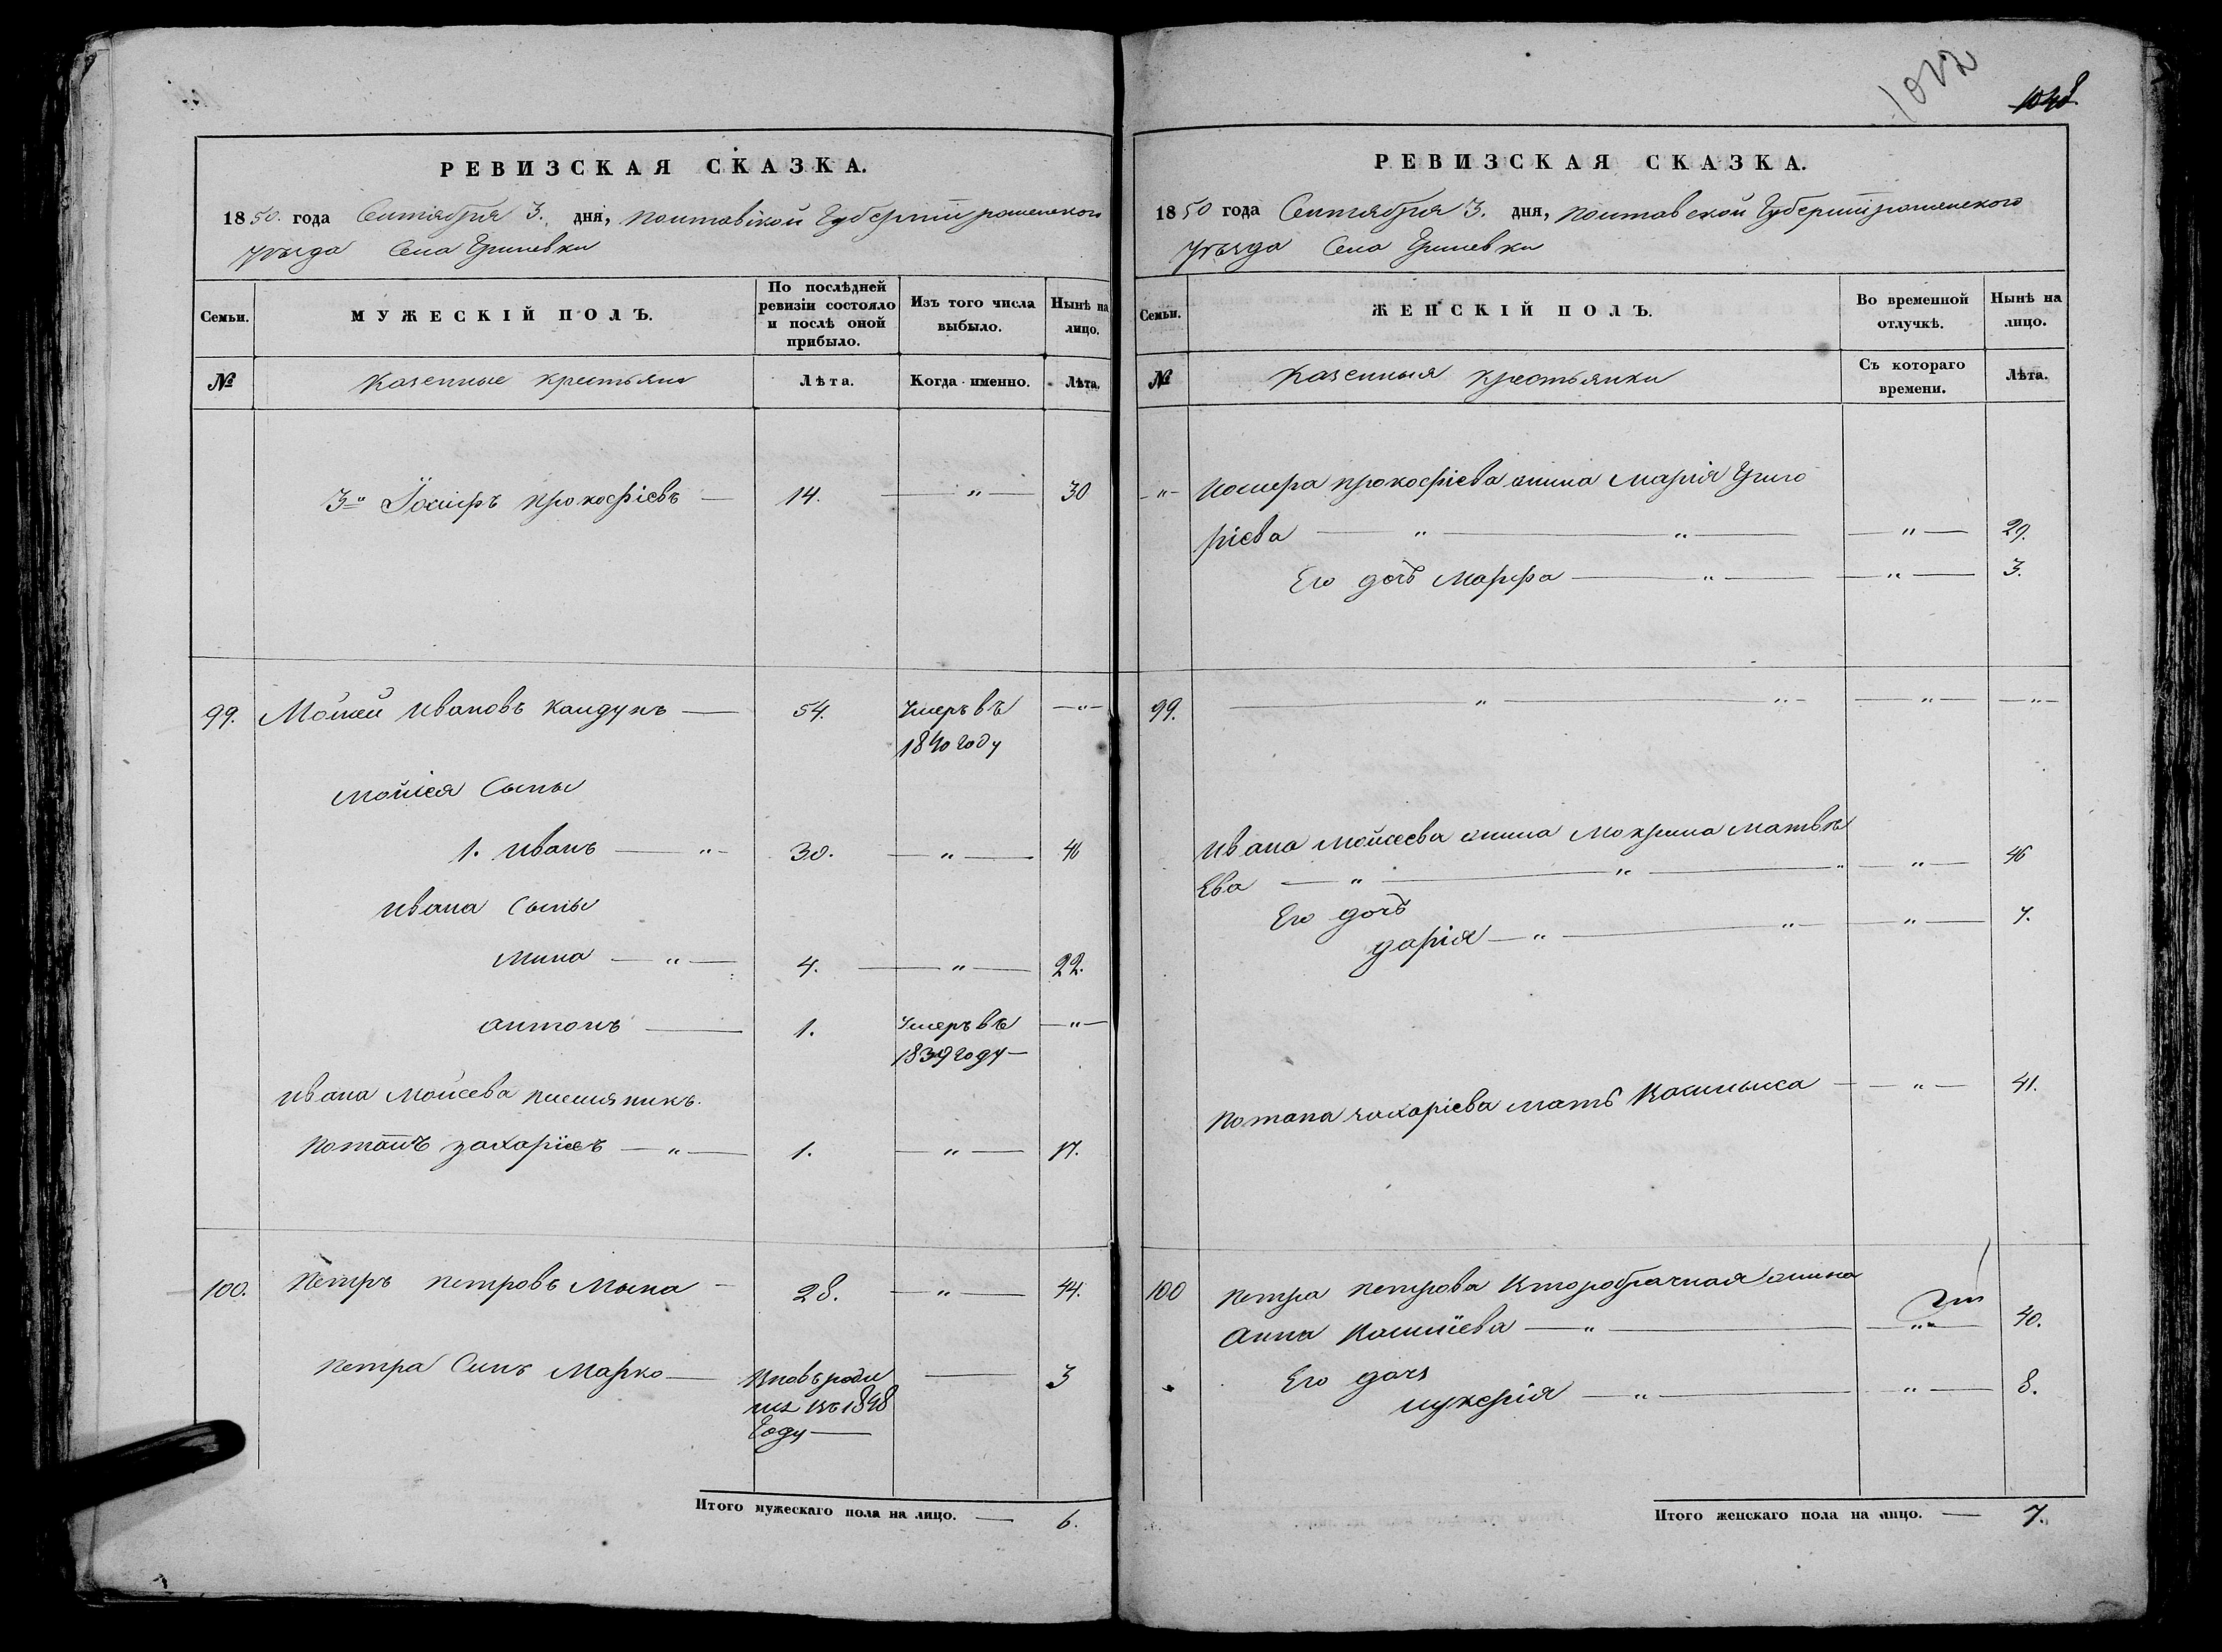 1012
1048
РЕВИЗСКАЯ СКАЗКА.
1850 года Сентября 3. дня, Полтавской Губерніи роменского
уѣзда Села Гриневки
Семьи. МУЖЕСКІЙ ПОЛЪ. По послѣдней ревизіи состояло и послѣ оной прибыло. Изъ того числа выбыло. Нынѣ на лицо.
№ Казенные крестьяни Лѣта. Когда именно. Лѣта.
3й прокофіевъ — 14. — " — 30
99. Мойсей Ивановъ — 54. Умеръ въ — " —
1840 году
Мойсея Сыны
1. Иванъ — " — 30. — " — 46
Ивана Сыны
Мина — " — 4. — " — 22.
антонъ — 1. Умеръ въ — " —
1839 году —
Ивана Мойсеева племяникъ.
Потапъ захаріевъ — " — 1. — " — 17.
100. Петръ петровъ — 28. — " — 44.
Петра Синъ Марко — Вновь роди — 3
лся въ 1848
Году —
Итого мужескаго пола на лицо. — 6.
РЕВИЗСКАЯ СКАЗКА.
1850 года Сентября 3. дня, полтавской Губерніи роменского
уѣзда Села Гриневки
Семьи. ЖЕНСКІЙ ПОЛЪ. Во временной отлучкѣ. Нынѣ на лицо.
№ Казенныя крестьянки Съ котораго времени. Лѣта.
— " — прокофіева жина Марія Григо
ріева — " — " — — " — 29.
Его дочь Марфа — " — — " — 3.
99. — " — " — — " — — " —
Ивана Мойсеева жина Мокрина Матвѣ
Ева — " — " — " — " — 46
Его дочь
дарія — " — " — — " — 7.
Потапа захаріева мать — — " — 41.
100 Петра Петрова Второбрачная жина
анна — " — — " — 40.
Его дочь
лукерія — " — — " — 8.
Итого женскаго пола на лицо. — 7.